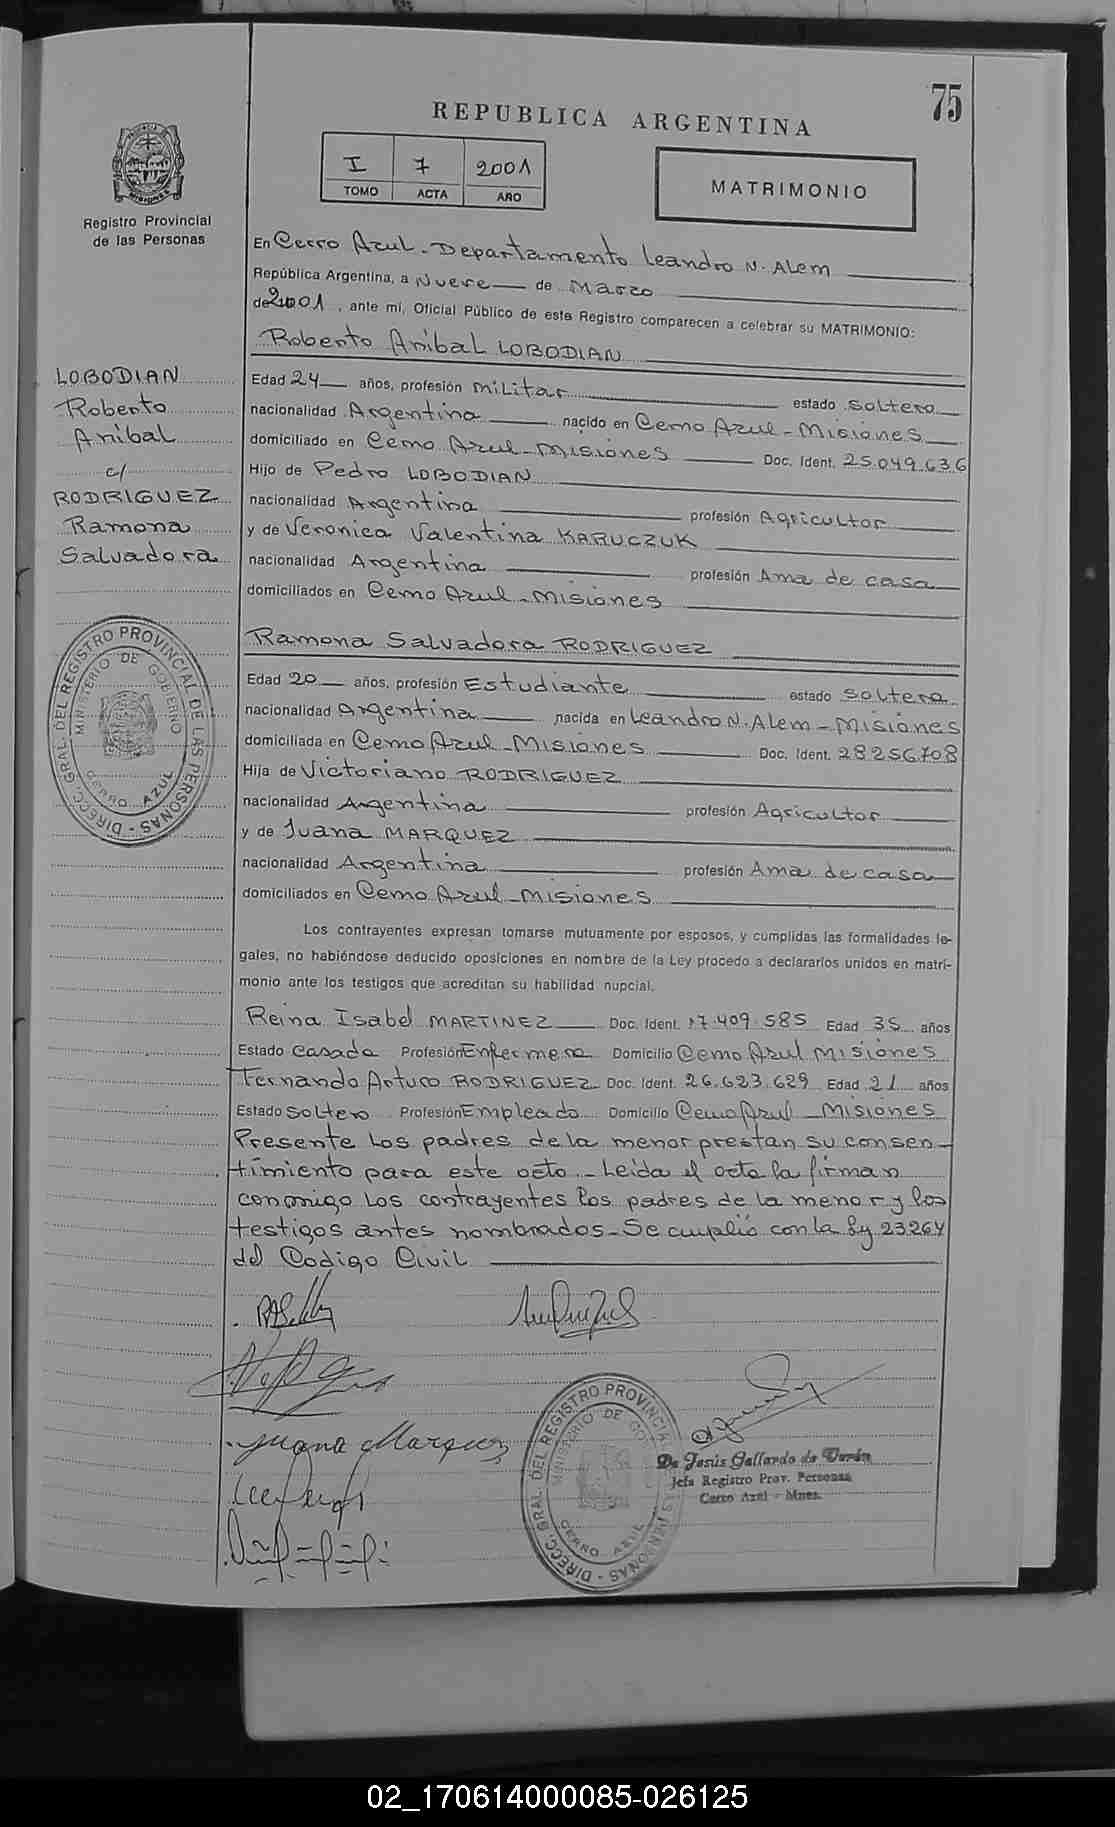 75
REPUBLICA ARGENTINA
I 7 2001
TOMO ACTA AÑO
MATRIMONIO
Registro Provincial
de las Personas
En Cerro Azul - Departamento Leandro N. Alem
República Argentina, a Nueve de Marzo
de 2001, ante mi, Oficial Público de este Registro comparecen a celebrar su MATRIMONIO:
Roberto Anibal LOBODIAN
LOBODIAN
Roberto
Anibal
c/
RODRIGUEZ
Ramona
Salvadora
Edad 24 años, profesión Militar estado soltero
nacionalidad Argentina nacido en Cerro Azul - Misiones
domiciliado en Cerro Azul - Misiones Doc. Ident. 25.049.636
Hijo de Pedro LOBODIAN
nacionalidad Argentina profesión Agricultor
y de Veronica Valentina KARUCZUK
nacionalidad Argentina profesión Ama de casa
domiciliados en Cerro Azul - Misiones
Ramona Salvadora RODRIGUEZ
Edad 20 años, profesión Estudiante estado soltera
nacionalidad Argentina nacida en Leandro N. Alem - Misiones
domiciliada en Cerro Azul - Misiones Doc. Ident. 28256708
Hija de Victoriano RODRIGUEZ
nacionalidad Argentina profesión Agricultor
y de Juana MARQUEZ
nacionalidad Argentina profesión Ama de casa
domiciliados en Cerro Azul - Misiones
Los contrayentes expresan tomarse mutuamente por esposos, y cumplidas las formalidades le-
gales, no habiéndose deducido oposiciones en nombre de la Ley procedo a declararlos unidos en matri-
monio ante los testigos que acreditan su habilidad nupcial.
Reina Isabel MARTINEZ Doc. Ident. 17.409.585 Edad 35 años
Estado Casada Profesión Enfermera Domicilio Cerro Azul Misiones
Fernando Arturo RODRIGUEZ Doc. Ident. 26.623.629 Edad 21 años
Estado soltero Profesión Empleado Domicilio Cerro Azul - Misiones
Presente los padres de la menor prestan su consen-
timiento para este acto - Leida el acta la firman
conmigo los contrayentes los padres de la menor y los
testigos antes nombrados - Se cumplió con la Ley 23264
del Codigo Civil
Juana Marquez
DIRECC. GRAL. DEL REGISTRO PROVINCIAL DE LAS PERSONAS
MINISTERIO DE GOBIERNO
CERRO AZUL
De Jesús Gallardo de Durán
Jefa Registro Prov. Personas
Cerro Azul - Mnes.
DIRECC. GRAL. DEL REGISTRO PROVINCIAL DE LAS PERSONAS
MINISTERIO DE GOBIERNO
CERRO AZUL
02_170614000085-026125